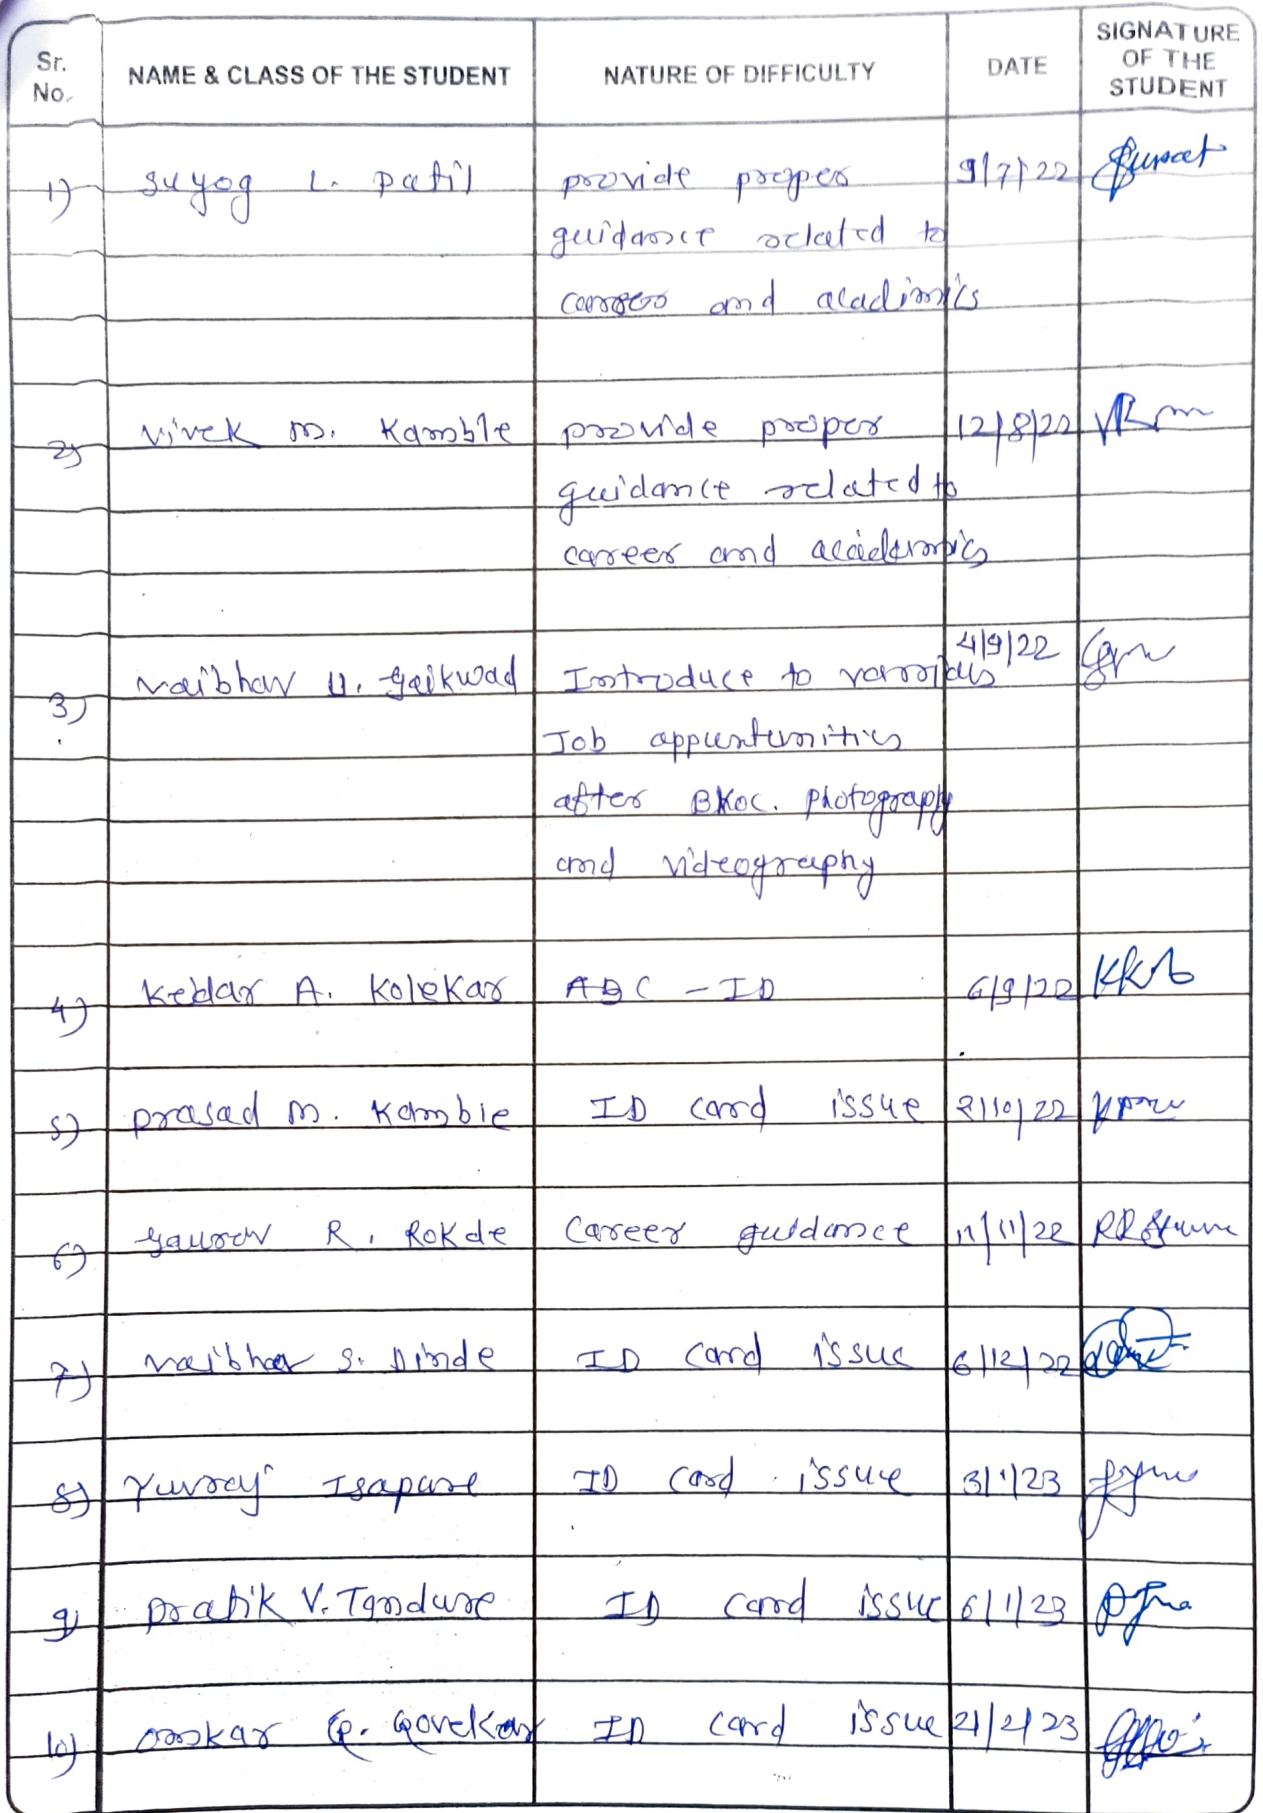 Sr. No.
NAME & CLASS OF THE STUDENT
NATURE OF DIFFICULTY
DATE
SIGNATURE OF THE STUDENT
1) Suyog L. Patil provide proper 9/7/22
guidance related to
career and acadimics
2) Vivek M. Kamble provide proper 12/8/22
guidance related to
career and academics
3) Vaibhav U. Gaikwad Introduce to various 4/9/22
Job
after BKoc. photography
and videography
4) Kedar A. Kolekar ABC - ID 6/9/22
5) Prasad M. Kamble ID card issue /10/22
6) Gaurav R. Rokde Career guidance 11/11/22
7) Vaibhav S. Dinde ID card issue 6/12/22
8) Yuvraj Isapure ID card issue 3/1/23
9) Pratik V. Tandure ID card issue 6/1/23
10) Omkar G. Govekar ID card issue 21/2/23